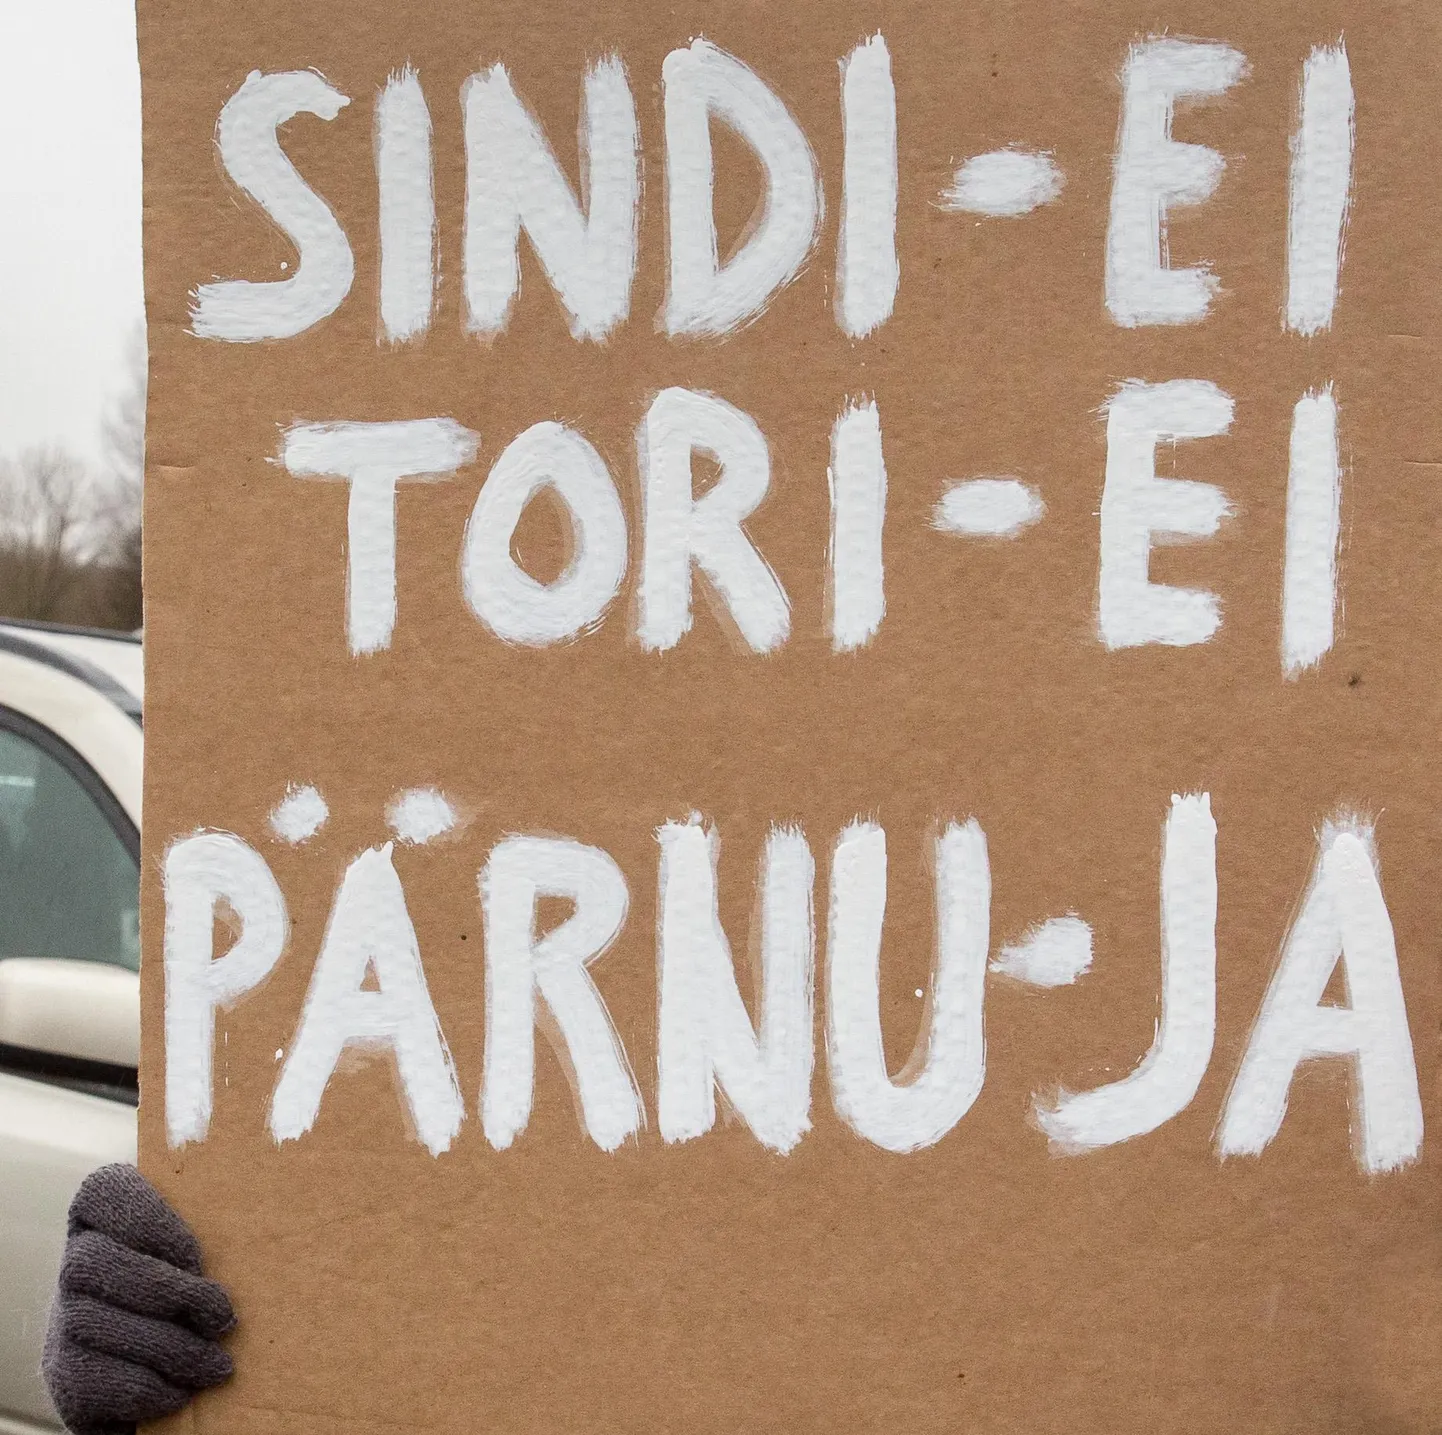 SINDI-EI
TORI-EI
PÄRNU-JA